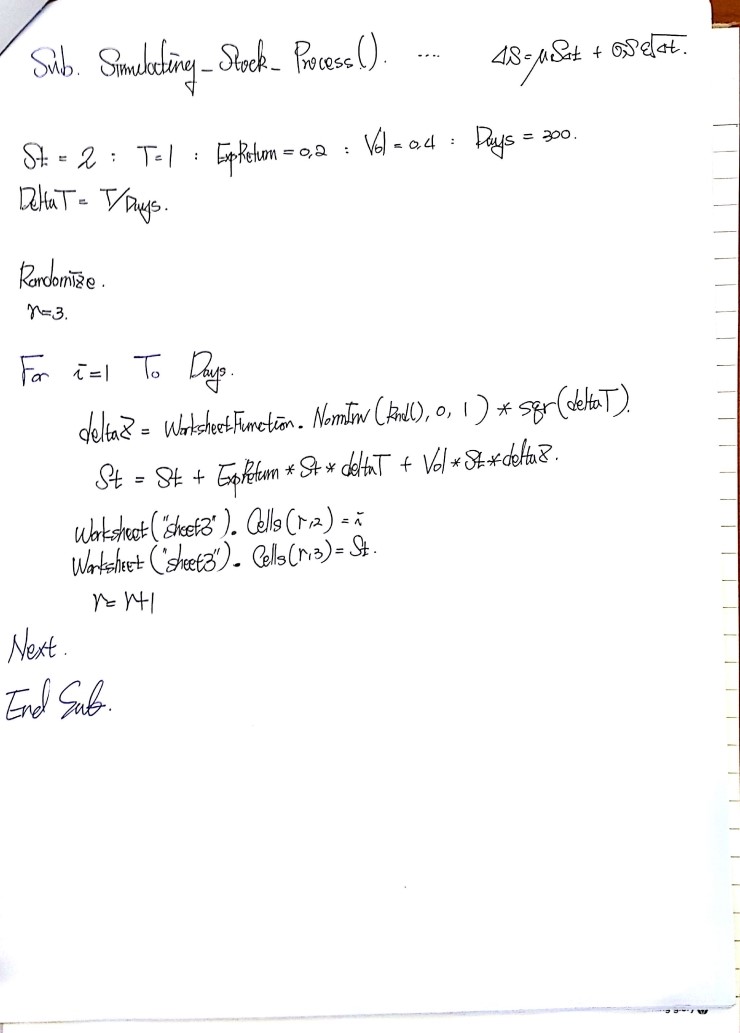 Sub. Simulating_Stock_Process(). .... ΔS=μSΔt + σSε√Δt.
St = 2 : T=1 : ExpReturn = 0,2 : Vol = 0.4 : Days = 300.
DeltaT = T/Days.
Randomize.
r=3.
For i=1 To Days.
deltaZ = WorksheetFunction. NormInv (Rnd(), 0, 1) * sqr(deltaT).
St = St + ExpReturn * St * deltaT + Vol * St * deltaZ.
Worksheet("sheet3"). Cells(r,2) = i
Worksheet ("sheet3"). Cells(r,3) = St.
r= r+1
Next.
End Sub.